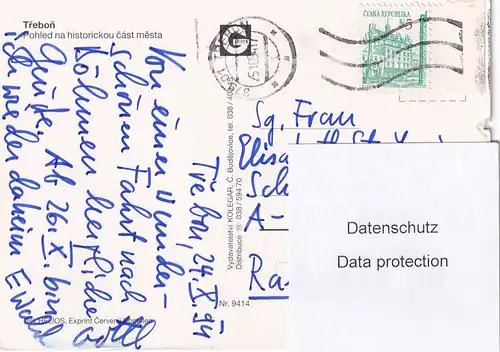 Třeboň
Pohled na historickou část města
Třeboň, 24. X. 94
Von einer wunder-
schönen Fahrt nach
Böhmen herzliche
Grüße. Ab 26. X. bin
ich wieder daheim Ewald
Vydavatelství KOLEGAR, Č. Budějovice, tel. 038 /
Distribuce ☏ 038 / 594 70
Nr. 9414
Exprint Červený
ČESKÁ REPUBLIKA
5
Sg. Frau
Elisa
Sch
A-
Ra
Datenschutz
Data protection